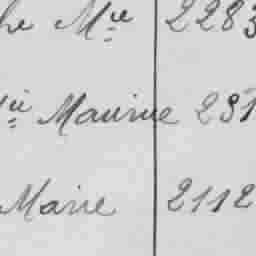 he Mie 2283
Maurice 231
Marie 2112